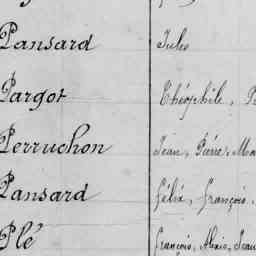 Pansard Jules
Pargot Théophile, P
Perruchon Jean, Pierre, Ma
Pansard Félix, François.
Plé François, Alexis, Jean